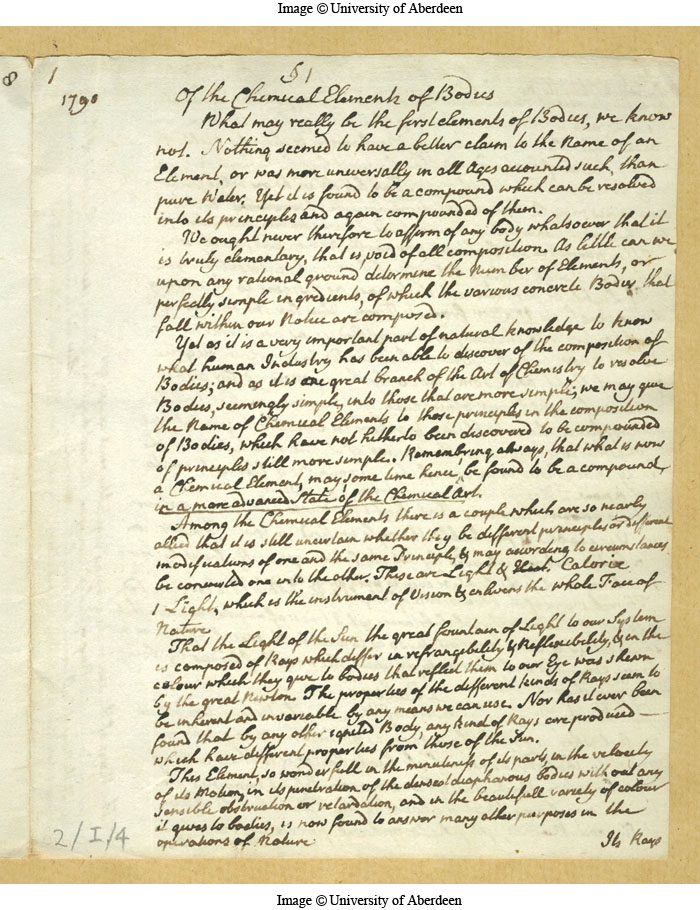 Image © University of Aberdeen
8
1
§ 1
1790
Of the Chemical Elements of Bodies
What may really be the first elements of Bodies, we know
not. Nothing seemed to have a better claim to the Name of an
Element, or was more universally in all Ages accounted such, than
pure Water. Yet it is found to be a compound which can be resolved
into its principles and again compounded of them.
We ought never therefore to affirm of any body whatsoever that it
is truly elementary, that is void of all composition. As little can we
upon any rational ground determine the Number of Elements, or
perfectly simple ingredients, of which the various concrete Bodies that
fall within our Notice are composed.
Yet as it is a very important part of natural knowledge to know
what human Industry has been able to discover of the composition of
Bodies; and as it is one great branch of the Art of Chemistry to resolve
Bodies, seemingly simple, into those that are more simple; we may give
the Name of Chemical Elements to those principles in the composition
of Bodies, which have not hitherto been discovered to be compounded
of principles still more simple. Remembring always, that what is now
a Chemical Element, may, some time hence, be found to be a compound,
in a more advanced State of the Chemical Art.
Among the Chemical Elements there is a couple which are so nearly
allied that it is still uncertain whether they be different principles or different
modifications of one and the same Principle, & may according to circumstances
be converted one into the other. These are Light & Heat. Caloric
1 Light, which is the instrument of Vision & enlivens the whole Face of
Nature
That the Light of the Sun the great fountain of Light to our System
is composed of Rays which differ in refrangibility & Reflexibility, & in the
colour which they give to bodies that reflect them to our Eye was shewn
by the great Newton. The properties of the different kinds of Rays seem to
be inherent and invariable by any means we can use. Nor has it ever been
found that by any other ignited Body, any kind of Rays are produced
which have different properties from those of the Sun.
This Element, so wonderfull in the minuteness of its parts, in the velocity
of its Motion, in its penetration of the densest diaphanous bodies without any
sensible obstruction or retardation, and in the beautifull variety of colour
it gives to bodies, is now found to answer many other purposes in the
operations of Nature
Its Rays
2/I/4
Image © University of Aberdeen